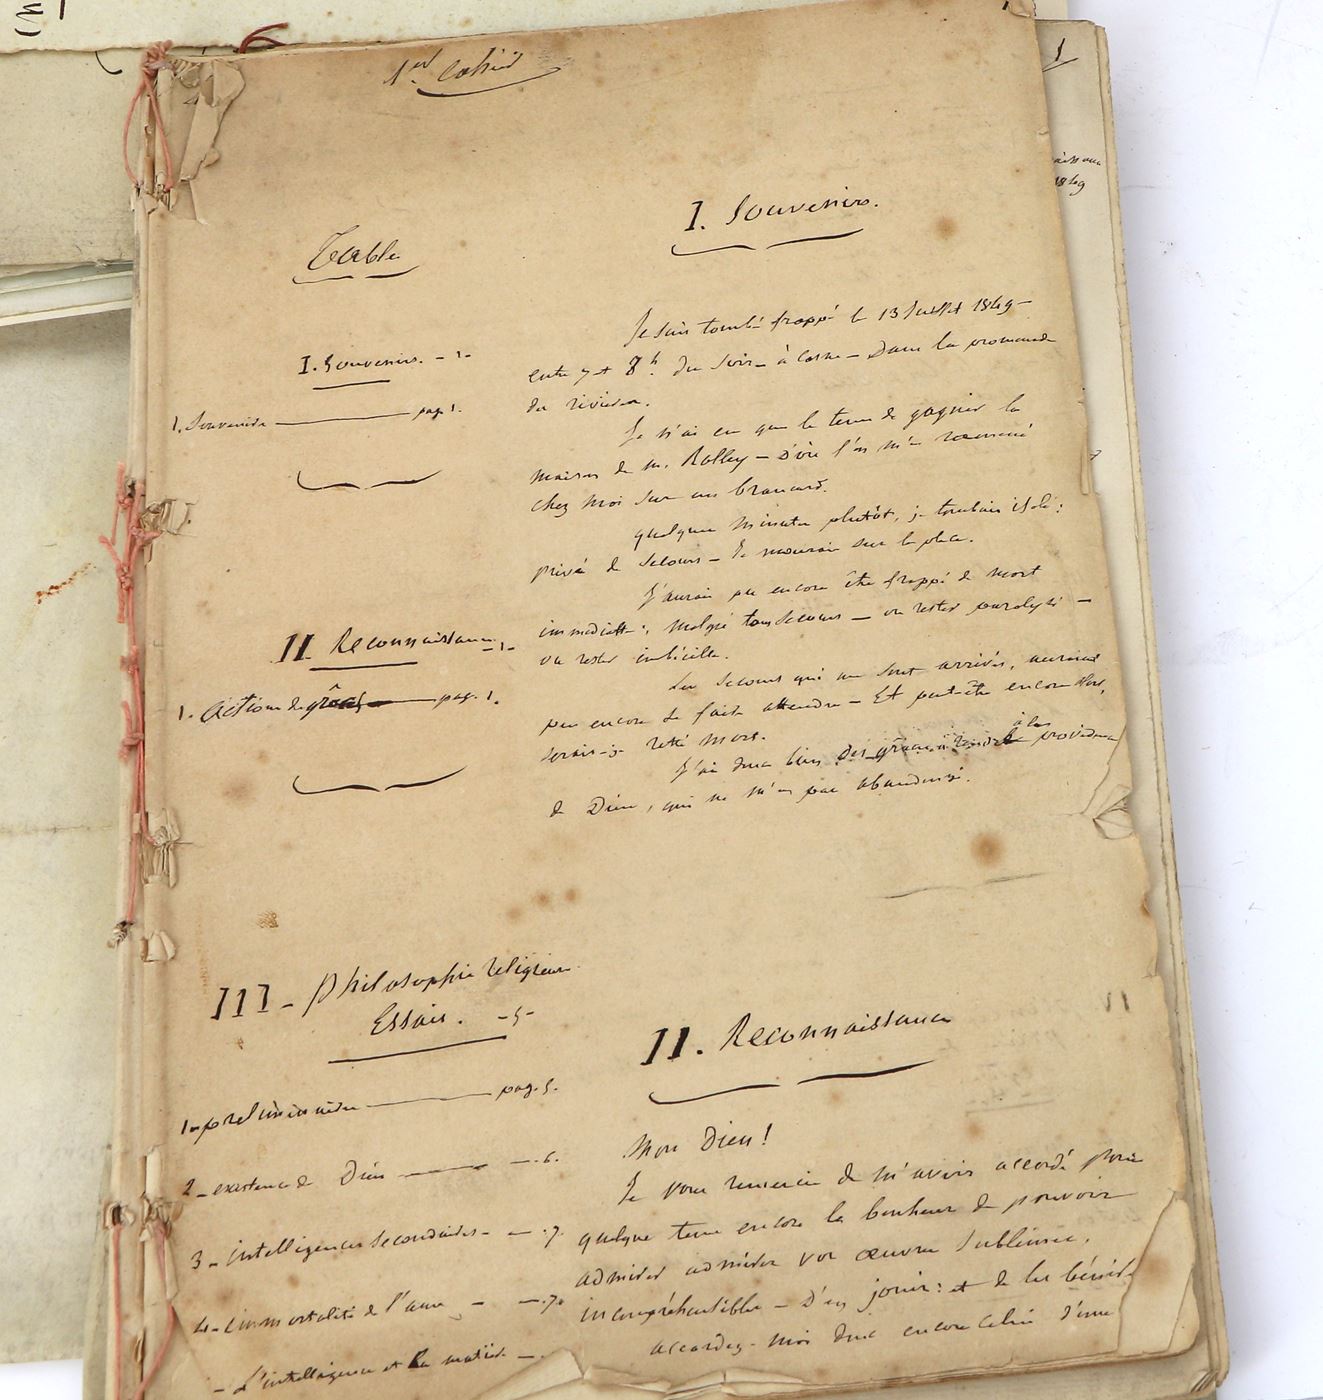 1er Cahier
Table
I. Souvenirs. - 1-
1. Souvenirs page 1.
II Reconnaissance -1-
1. Action de grâces page 1.
III - philosophie religieuse
Essais. -5-
1- preliminaires page 5.
2- existence de Dieu - 6.
3- intelligences secondaires - - 7.
4- immortalité de l'ame - - 7.
- L'intelligence et la matière -
I. Souvenirs.
Je suis tombé frappé le 13 Juillet 1849 -
entre 7 et 8h du soir - à Cosne - Dans la promenade
du rivier
Je n'ai eu que le tems de gagner la
maison de M. - D'où l'on m'a ramené
chez moi sur un brancard.
quelques minutes plutôt, je tombais isolé:
privé de secours - Je mourais sur la place.
J'aurais pu encore être frappé de mort
immédiate: malgré tous secours - ou rester paralysé -
ou rester imbécille.
Les secours qui me sont arrivés, auraient
pu encore se faire attendre - Et peut-être encore alors,
serais-je resté mort.
J'ai donc bien des grâces à rendre à la providence
de Dieu, qui ne m'a pas abandonné.
II. Reconnaissance
Mon Dieu!
Je vous remercie de m'avoir accordé pour
quelque tems encore le bonheur de pouvoir
admirer admirer vos œuvres sublimes,
incompréhensibles - D'en jouir: et de les bénir
accordez-moi donc encore celui d'une
1849